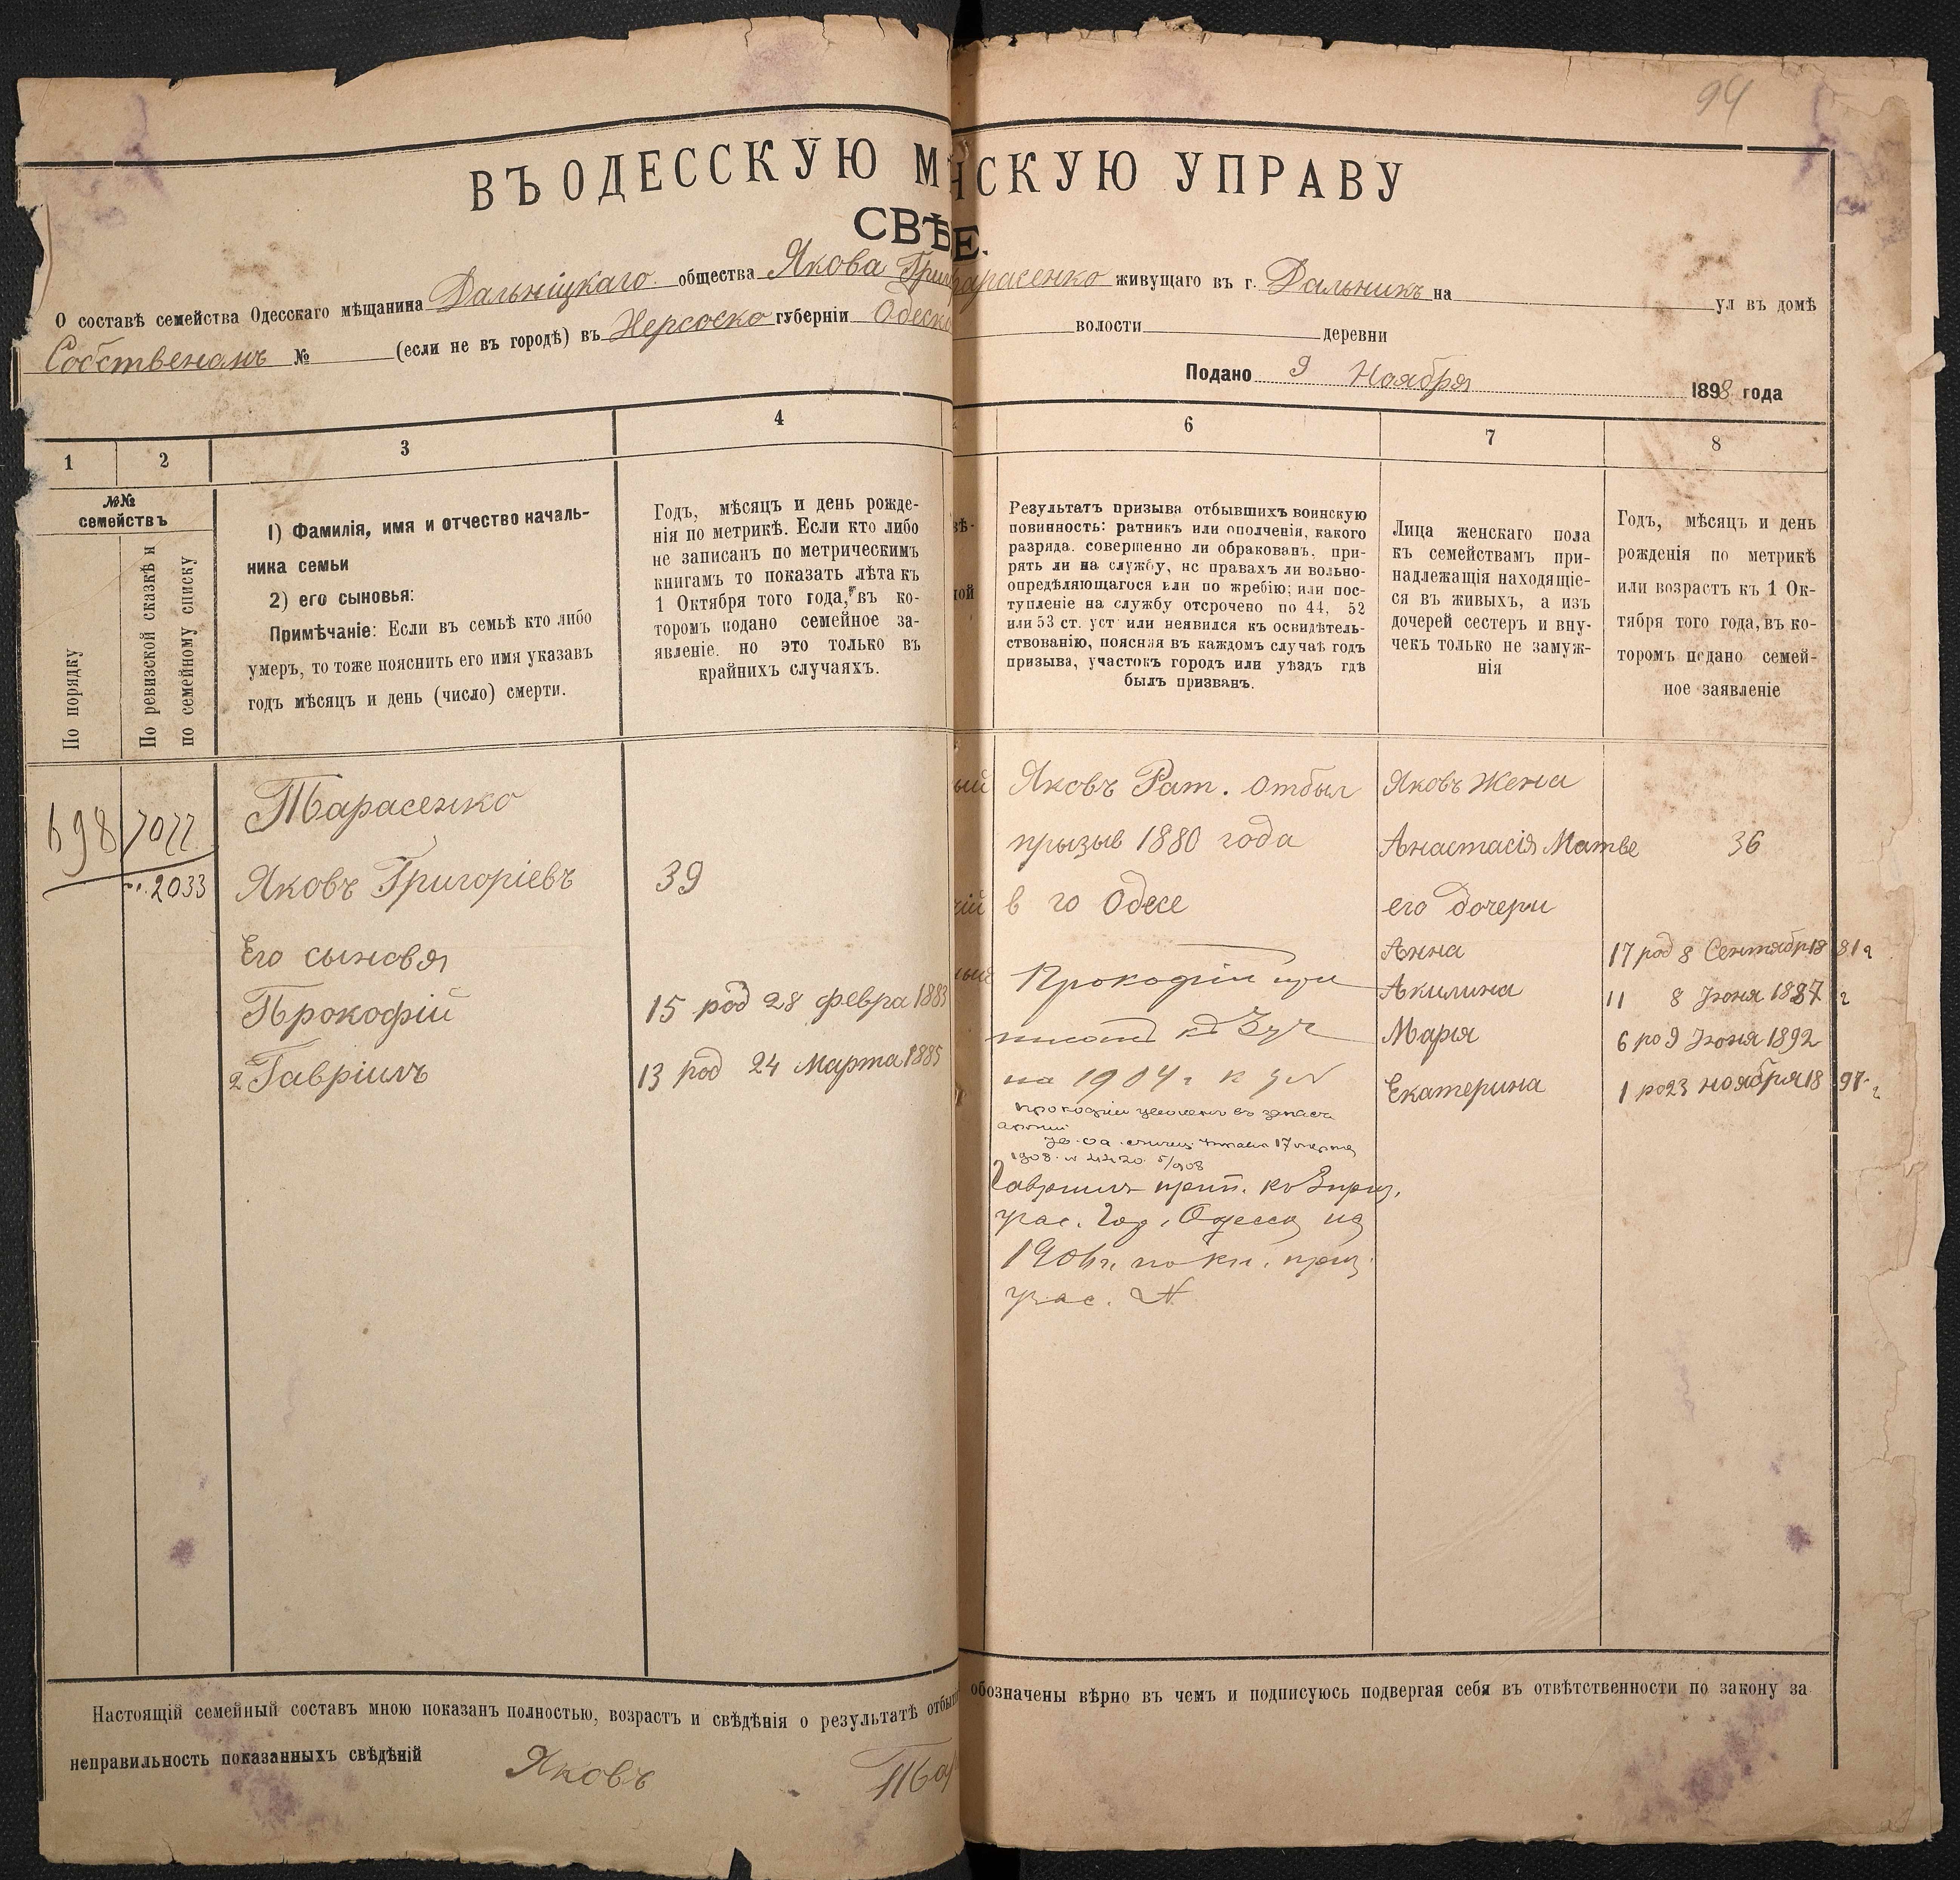 94
ВЪ ОДЕССКУЮ М НСКУЮ УПРАВУ
СВѢ Е.
О составѣ семейства Одесскаго мѣщанина Дальніцкаго общества Якова Гри арасенко живущаго въ г. Дальникъ на ул въ домѣ
Собственомъ № (если не въ городѣ) въ Херсоско губерніи Одеско волости деревни
Подано 9 Ноября 1898 года
1 2 3 4 6 7 8
№№ семействъ
По порядку
По ревизской сказкѣ и
по семейному списку
1) Фамилія, имя и отчество началь-
ника семьи
2) его сыновья:
Примѣчаніе: Если въ семьѣ кто либо
умеръ, то тоже пояснить его имя указавъ
годъ мѣсяцъ и день (число) смерти.
Годъ, мѣсяцъ и день рожде-
нія по метрикѣ. Если кто либо
не записанъ по метрическимъ
книгамъ то показать лѣта къ
1 Октября того года, въ ко-
торомъ подано семейное за-
явленіе. но это только въ
крайнихъ случаяхъ.
вѣ-
ной
Результатъ призыва отбывшихъ воинскую
повинность: ратникъ или ополченія, какого
разряда. совершенно ли обракованъ. при-
рять ли на службу, нс правахъ ли вольно-
опредѣляющагося или по жребію; или пос-
тупленіе на службу отсрочено по 44, 52
или 53 ст. уст или неявился къ освидѣтель-
ствованію, поясняя въ каждомъ случаѣ годъ
призыва, участокъ городъ или уѣздъ гдѣ
былъ призванъ.
Лица женскаго пола
къ семействамъ при-
надлежащія находящіе-
ся въ живыхъ, а изъ
дочерей сестеръ и вну-
чекъ только не замуж-
нія
Годъ, мѣсяцъ и день
рожденія по метрикѣ
или возрастъ къ 1 Ок-
тября того года, въ ко-
торомъ подано семей-
ное заявленіе
698 7077
2033
Тарасенко
Яковъ Григоріевъ 39
Его сыновя
Прокофій 15 род 28 февра 1883
2 Гавріилъ 13 род 24 Марта 1885
Яковъ Рат. отбыл
прызыв 1880 года
в го Одесе
Прокофій при
на 1904 г
Прокофій уволенъ въ запасъ
арміи
17 марта
1908. № 4420 5/908
Гавріилъ прип. къ 3 приз.
учас. Гор. Одессы на
1906 г. по кн. приз.
учас. №
Яковъ Жена
Анастасія Матве 36
его дочери
Анна 17 род 8 Сентября 1881 г
Акилина 11 8 Іюня 1887 г
Марія 6 ро 9 Іюня 1892
Екатерина 1 ро 23 ноября 1897 г
Настоящій семейный составъ мною показанъ полностью, возрастъ и свѣдѣнія о результатѣ отбы обозначены вѣрно въ чемъ и подписуюсь подвергая себя въ отвѣтственности по закону за
неправильность показанныхъ свѣдѣній Яковъ Тар